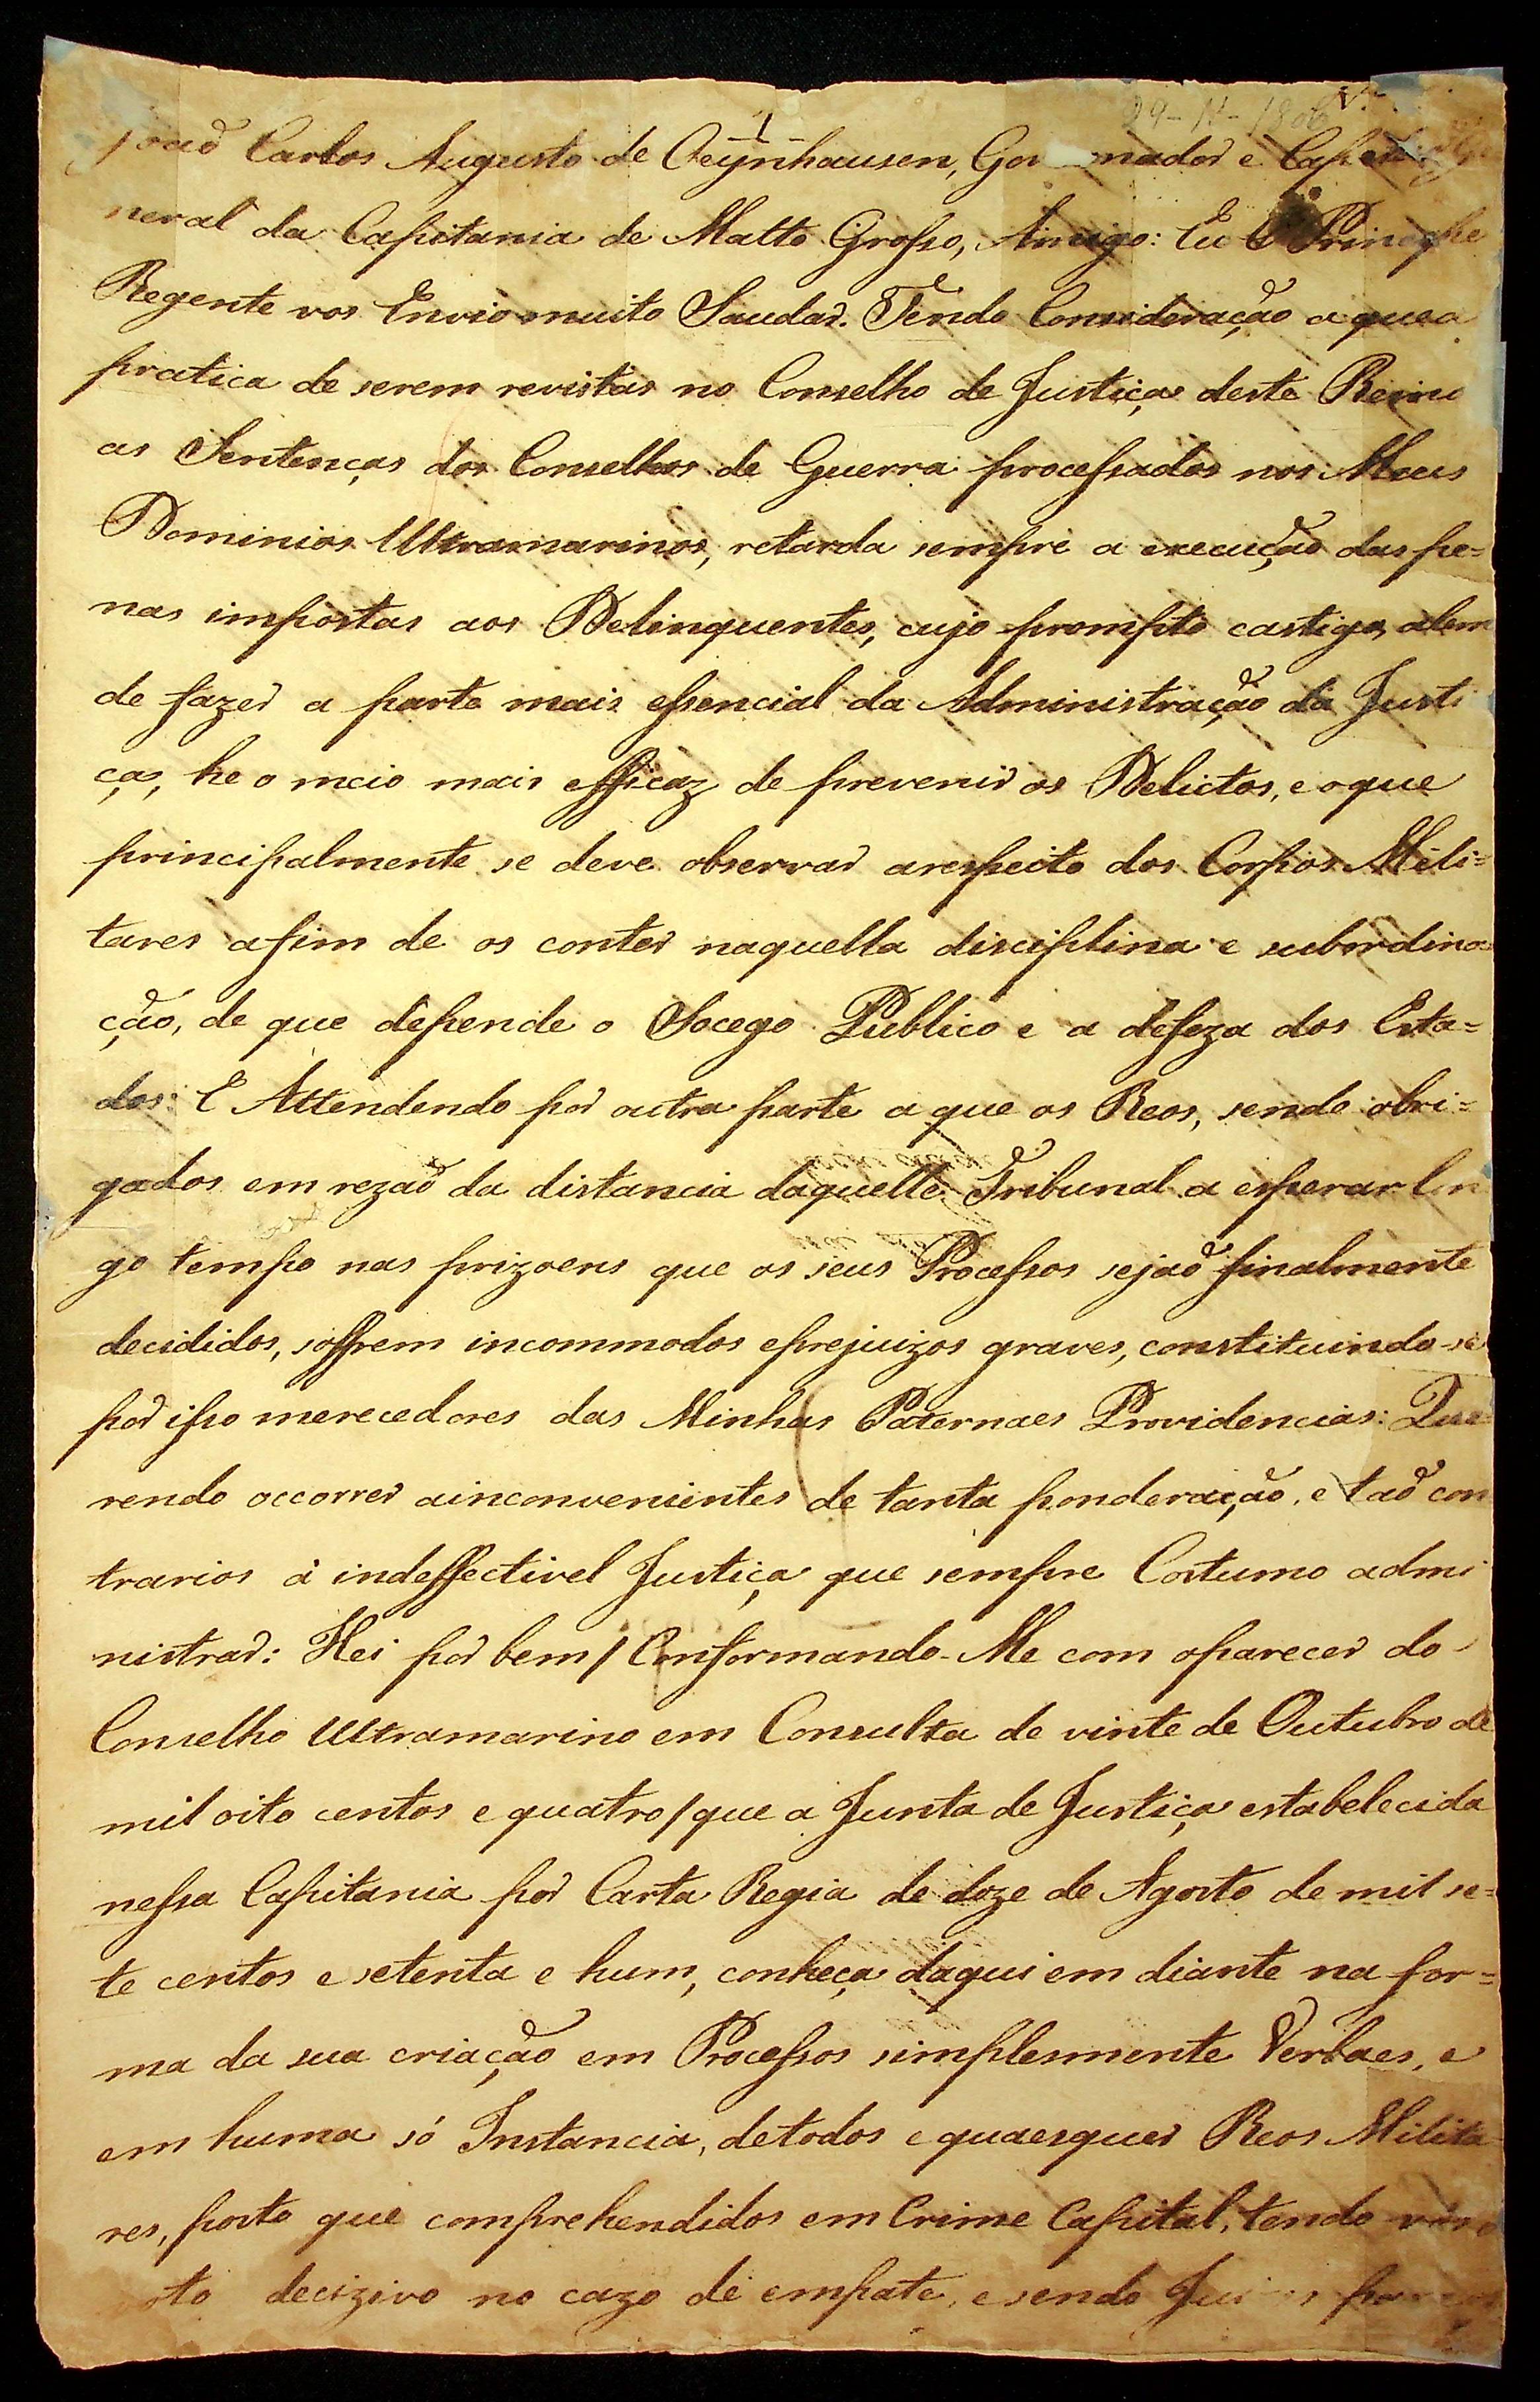 29-11-1806
1
João Carlos Augusto de Oeynhausen, Gov nador e Capitão Ge
neral da Capitania de Matto Grosso, Amigo: Eu o Principe
Regente vos Envio muito Saudar. Tendo Consideração a que a
pratica de serem revistas no Conselho de Justiça deste Reino
as Sentenças dos Conselhos de Guerra processados nos Meus
Dominios Ultramarinos, retarda sempre a execução das pe=
nas impostas aos Delinquentes, cujo prompto castigo, alem
de fazer a parte mais essencial da Administração da Justi
ça, he o meio mais efficaz de prevenir os Delictos, e o que
principalmente se deve observar a respeito dos Corpos Mili=
tares afim de os conter naquella disciplina e subordina=
ção, de que depende o Socego Publico e a defeza dos Esta=
dos: E Attendendo por outra parte a que os Reos, sendo obri=
gados em rezaõ da distancia daquelle Tribunal a esperar lon
go tempo nas prizoens que os seus Processos sejaõ finalmente
decididos, soffrem incommodos e prejuizos graves, constituindo-se
por isso merecedores das Minhas Paternaes Providencias: Que
rendo occorrer a inconvenientes de tanta ponderação, e taõ con
trarios á indeffectivel Justiça que sempre Costumo admi
nistrar: Hei por bem / Conformando-Me com o parecer do
Conselho Ultramarino em Consulta de vinte de Outubro de
mil oito centos e quatro / que a Junta de Justiça estabelecida
nessa Capitania por Carta Regia de doze de Agosto de mil se=
te centos e setenta e hum, conheça daqui em diante na for=
ma da sua criação em Processos simplesmente Verbaes, e
em huma só Instancia, de todos e quaesquer Reos Milita
res, posto que comprehendidos em Crime Capital, tendo vós o
to decizivo no cazo de empate, e sendo